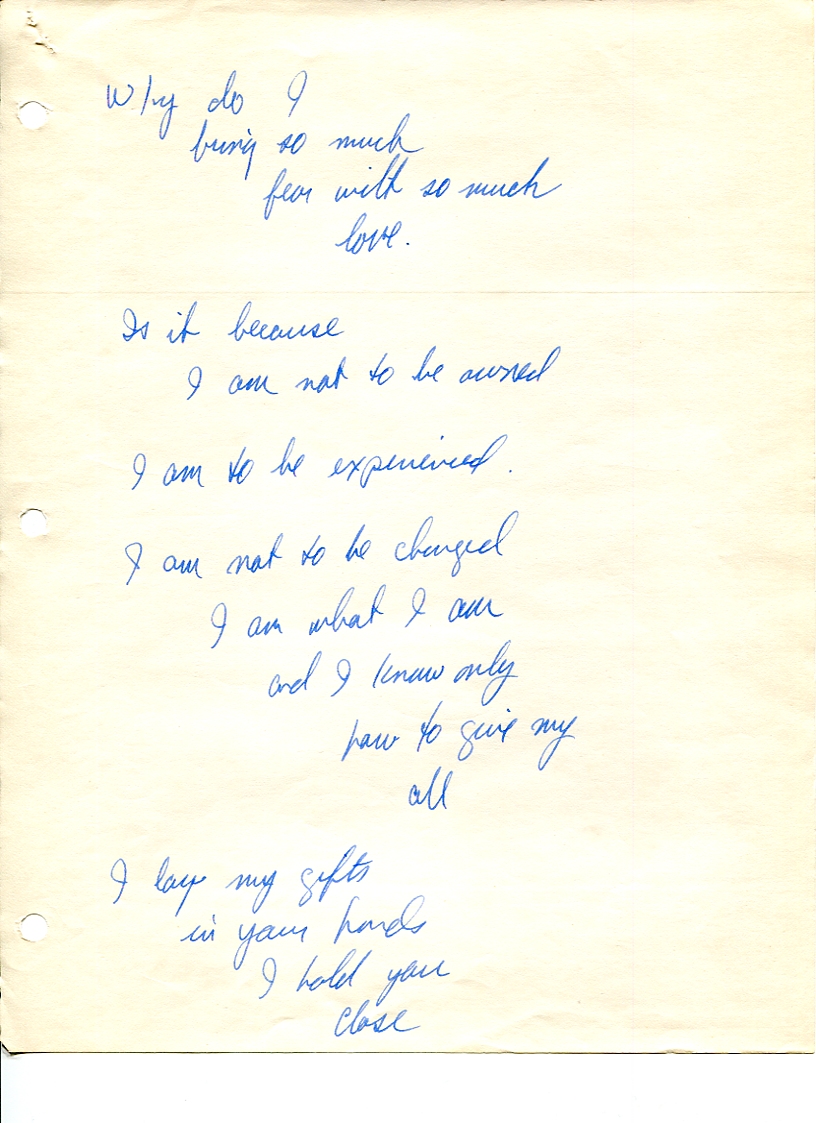 Why do I
bring so much
fear with so much
love.
Is it because
I am not to be owned
I am to be experienced.
I am not to be changed
I am what I am
and I know only
how to give my
all
I lay my gifts
in your hands
I hold you
close